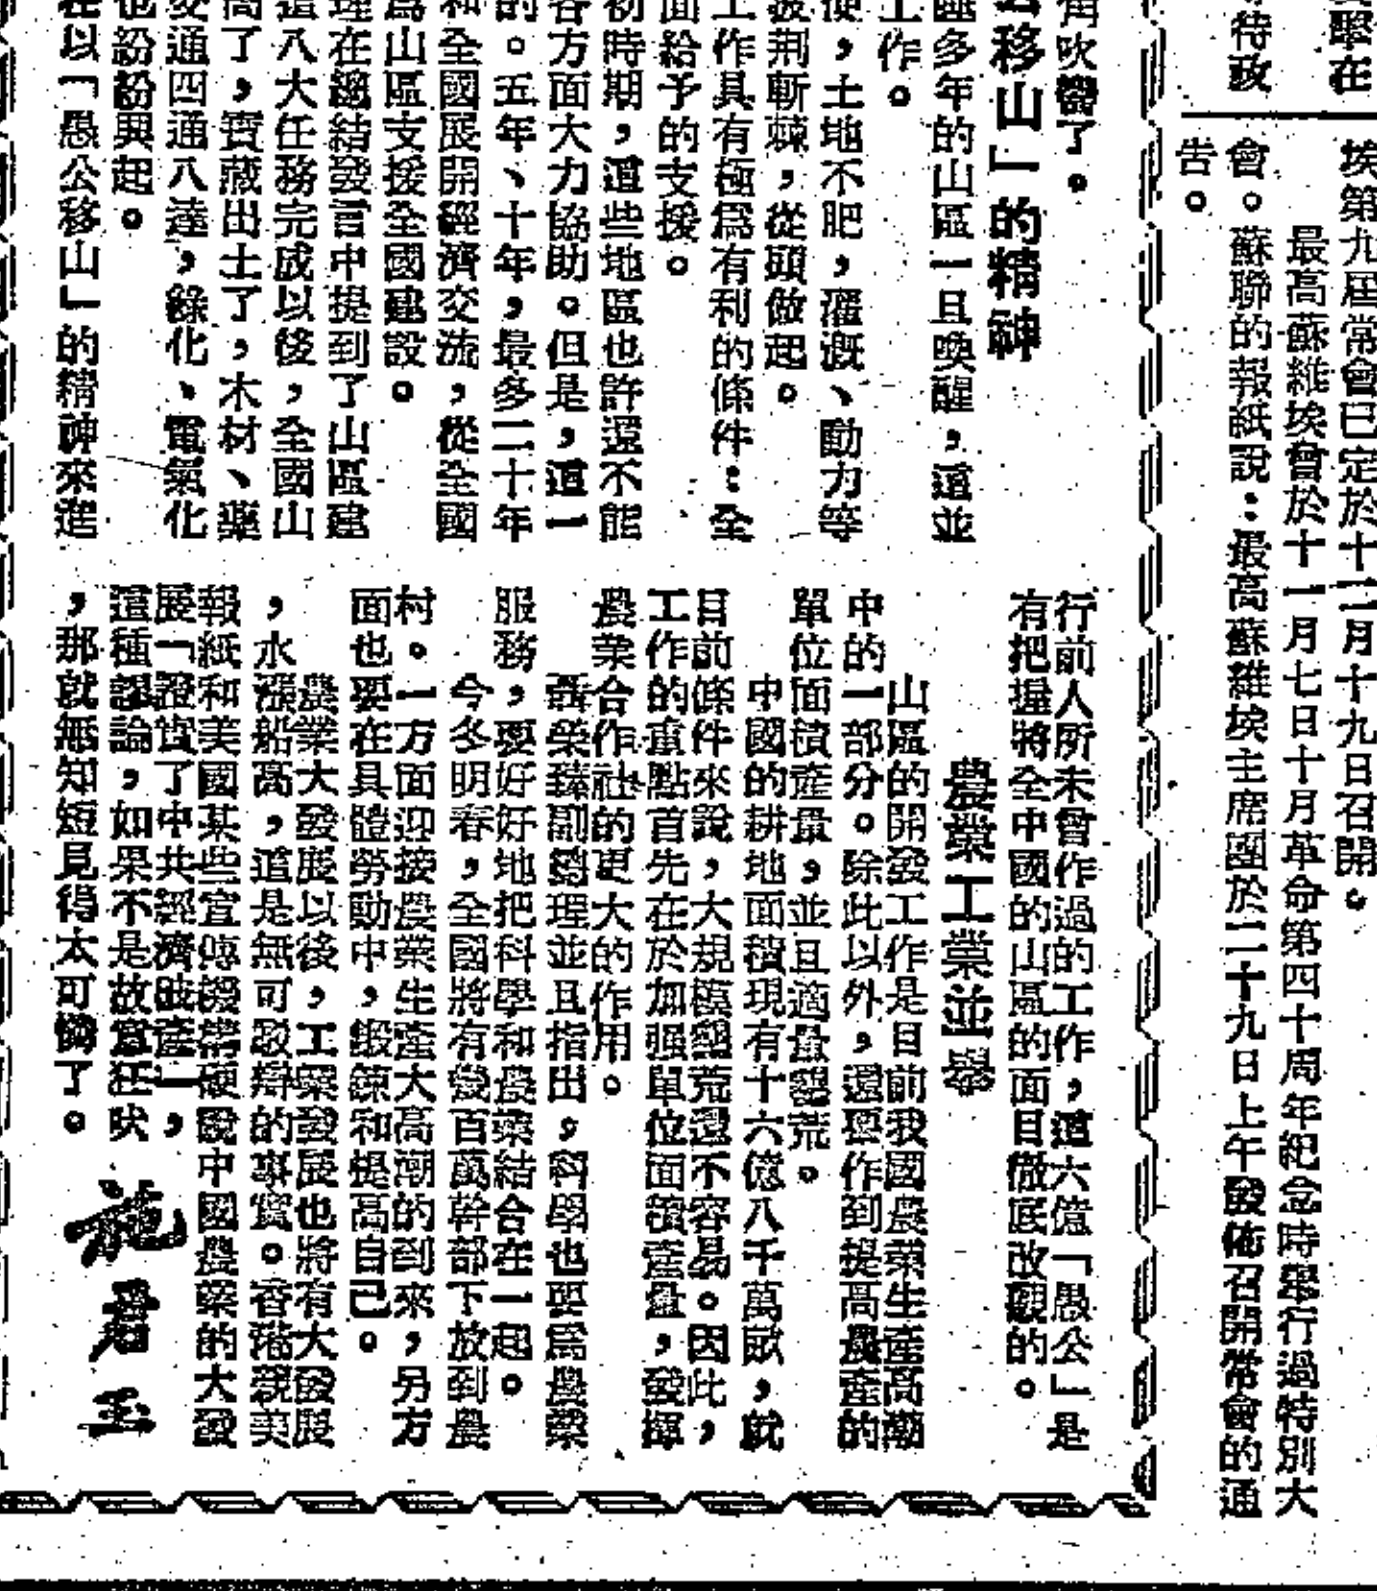 擊在
特政
埃第九屆常會已定於十二月十九日召開。
最高蘇維埃曾於十一月七日十月革命第四十周年紀念時舉行過特別大
會。蘇聯的報紙說：最高蘇維埃主席團於二十九日上午發佈召開常會的通
告。
角吹響了。
公移山」的精神
區多年的山區一旦喚醒，這並
工作。
便，土地不肥，灌溉、動力等
披荊斬棘，從頭做起。
工作具有極爲有利的條件：全
面給予的支援。
初時期，這些地區也許還不能
各方面大力協助。但是，這一
的。五年、十年，最多二十年
和全國展開經濟交流，從全國
爲山區支援全國建設。
理在總結發言中提到了山區建
這八大任務完成以後，全國山
高了，寶藏出土了，木材、藥
交通四通八達，綠化、電氣化
也紛紛興起。
在以「愚公移山」的精神來進
行前人所未曾作過的工作，這六億「愚公」是
有把握將全中國的山區的面目徹底改觀的。
農業工業並舉
山區的開發工作是目前我國農業生產高潮
中的一部分。除此以外，還要作到提高農產的
單位面積產量，並且適量墾荒。
中國的耕地面積現有十六億八千萬畝，就
目前條件來說，大規模墾荒還不容易。因此，
工作的重點首先在於加强單位面積產量，發揮
農業合作社的更大的作用。
聶榮臻副總理並且指出，科學也要爲農業
服務，要好好地把科學和農業結合在一起。
今冬明春，全國將有幾百萬幹部下放到農
村。一方面迎接農業生產大高潮的到來，另方
面也要在具體勞動中，鍛鍊和提高自己。
農業大發展以後，工業發展也將有大發展
，水漲船高，這是無可駁辯的事實。香港親美
報紙和美國某些宣傳機構硬說中國農業的大發
展「證實了中共經濟破產」，
這種謬論，如果不是故意狂吠
，那就無知短見得太可憐了。